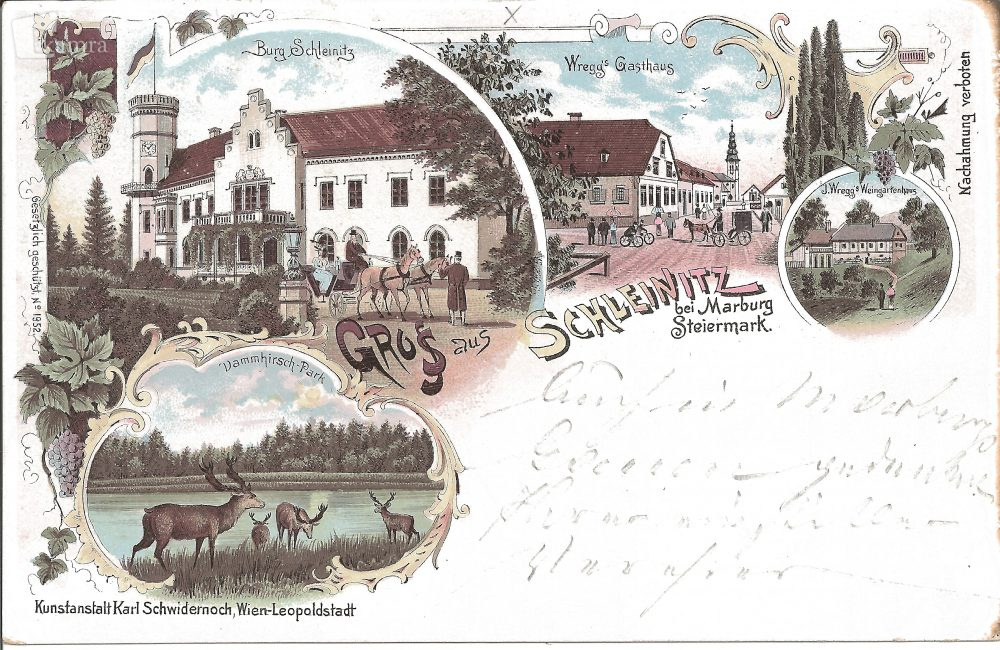 Kamra
Burg Schleinitz
Wregg's Gasthaus
J. Wregg's Weingartenhaus
Nachahmung verboten
Gesetzlich geschützt. No 1952.
GRUS aus SCHLEINITZ
bei Marburg
Steiermark.
Dammhirsch-Park
Auch in Marburg
gedenken
Verehrer
Kunstanstalt Karl Schwidernoch, Wien-Leopoldstadt